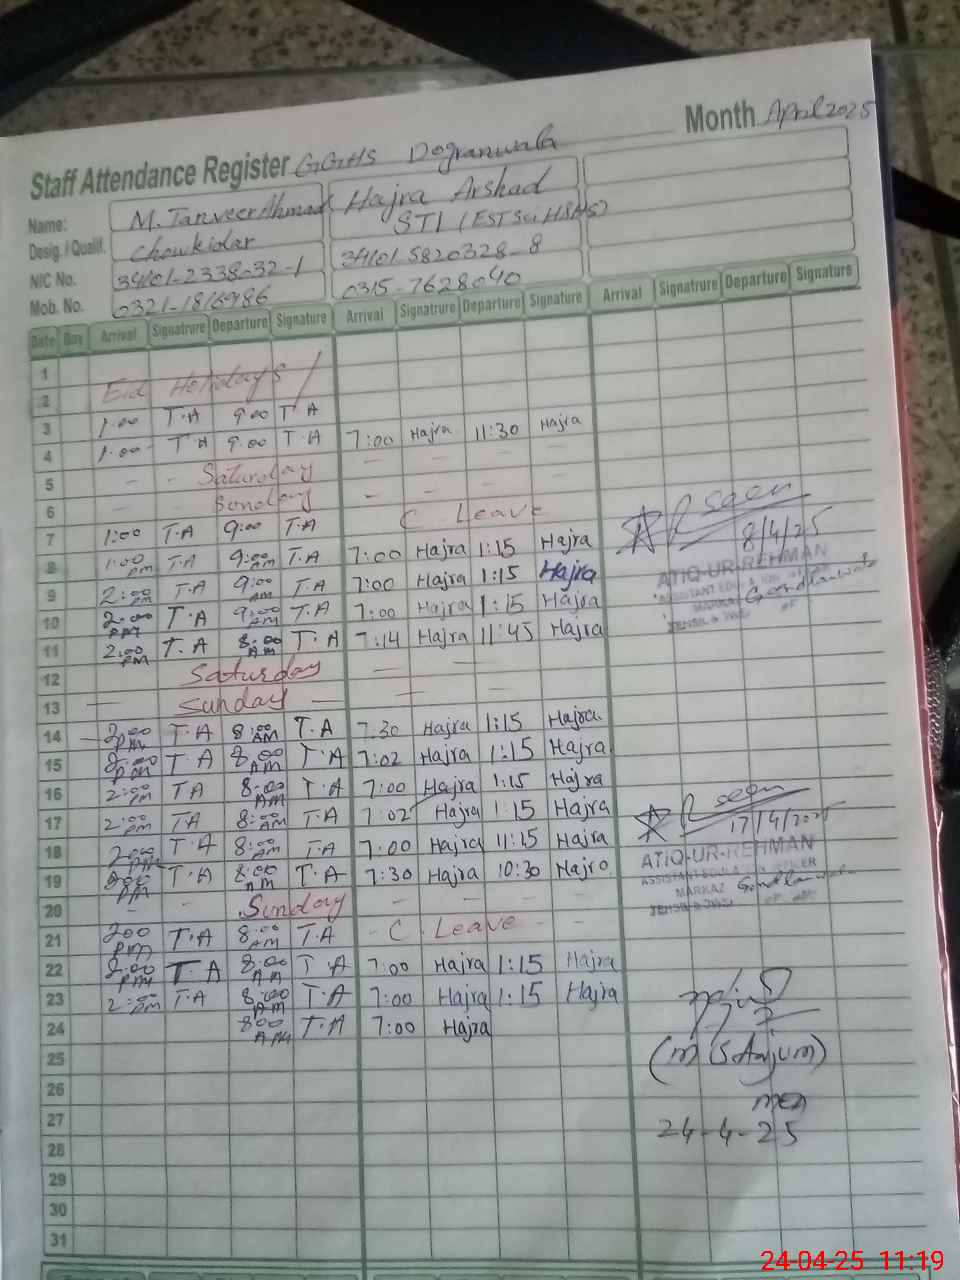 Month April 2025
Staff Attendance Register GGHS Dogranwala
Name: M. Tanveer Ahmad Hajra Arshad
Desig. / Qualif. Chowkidar STI (EST Sci H&S)
NIC No. 34101-2338032-1 34101-5820328-8
Mob. No. 0321-1816986 0315-7628040
Date Day Arrival Signatrure Departure Signature Arrival Signatrure Departure Signature Arrival Signatrure Departure Signature
1
2 Eid Holidays
3 1.00 T.A 9.00 T A
4 1.00 T A 9.00 T.A 7:00 Hajra 11:30 Hajra
5 - - Saturday - - - -
6 - Sunday - - - -
7 1:00 T.A 9:00 T.A C Leave
8 1:00 PM T.A 9:00 AM T.A 7:00 Hajra 1:15 Hajra
9 2:00 PM T.A 9:00 AM T.A 7:00 Hajra 1:15 Hajra
10 2:00 PM T.A 9:00 AM T.A 7:00 Hajra 1:15 Hajra
11 2:00 PM T.A 8:00 AM T.A 7:14 Hajra 11:45 Hajra
seen
8/4/25
ATIQ-UR-REHMAN
MARKAZ Gondlanwala
12 Saturday - -
13 - Sunday - - -
14 2:00 PM T.A 8:00 AM T.A 7.30 Hajra 1:15 Hajra
15 2:00 PM T A 8:00 AM T.A 7:02 Hajra 1:15 Hajra
16 2:00 PM T.A 8:00 AM T.A 7:00 Hajra 1:15 Hajra
17 2:00 PM T.A 8:00 AM T.A 7:02 Hajra 1:15 Hajra
18 2:00 PM T.A 8:00 AM T.A 7:00 Hajra 11:15 Hajra
19 2:00 PM T.A 8:00 AM T.A 7:30 Hajra 10:30 Hajra
seen
17/4/2025
ATIQ-UR-REHMAN
MARKAZ Gondlanwala
20 - - Sunday - - - -
21 2:00 PM T.A 8:00 AM T.A - C. Leave - -
22 2:00 PM T.A 8:00 AM T.A 7:00 Hajra 1:15 Hajra
23 2:00 PM T.A 8:00 AM T.A 7:00 Hajra 1:15 Hajra
24 8:00 AM T.A 7:00 Hajra
25
(M S Anjum)
26
27
24-4-25
28
29
30
31
24-04-25 11:19